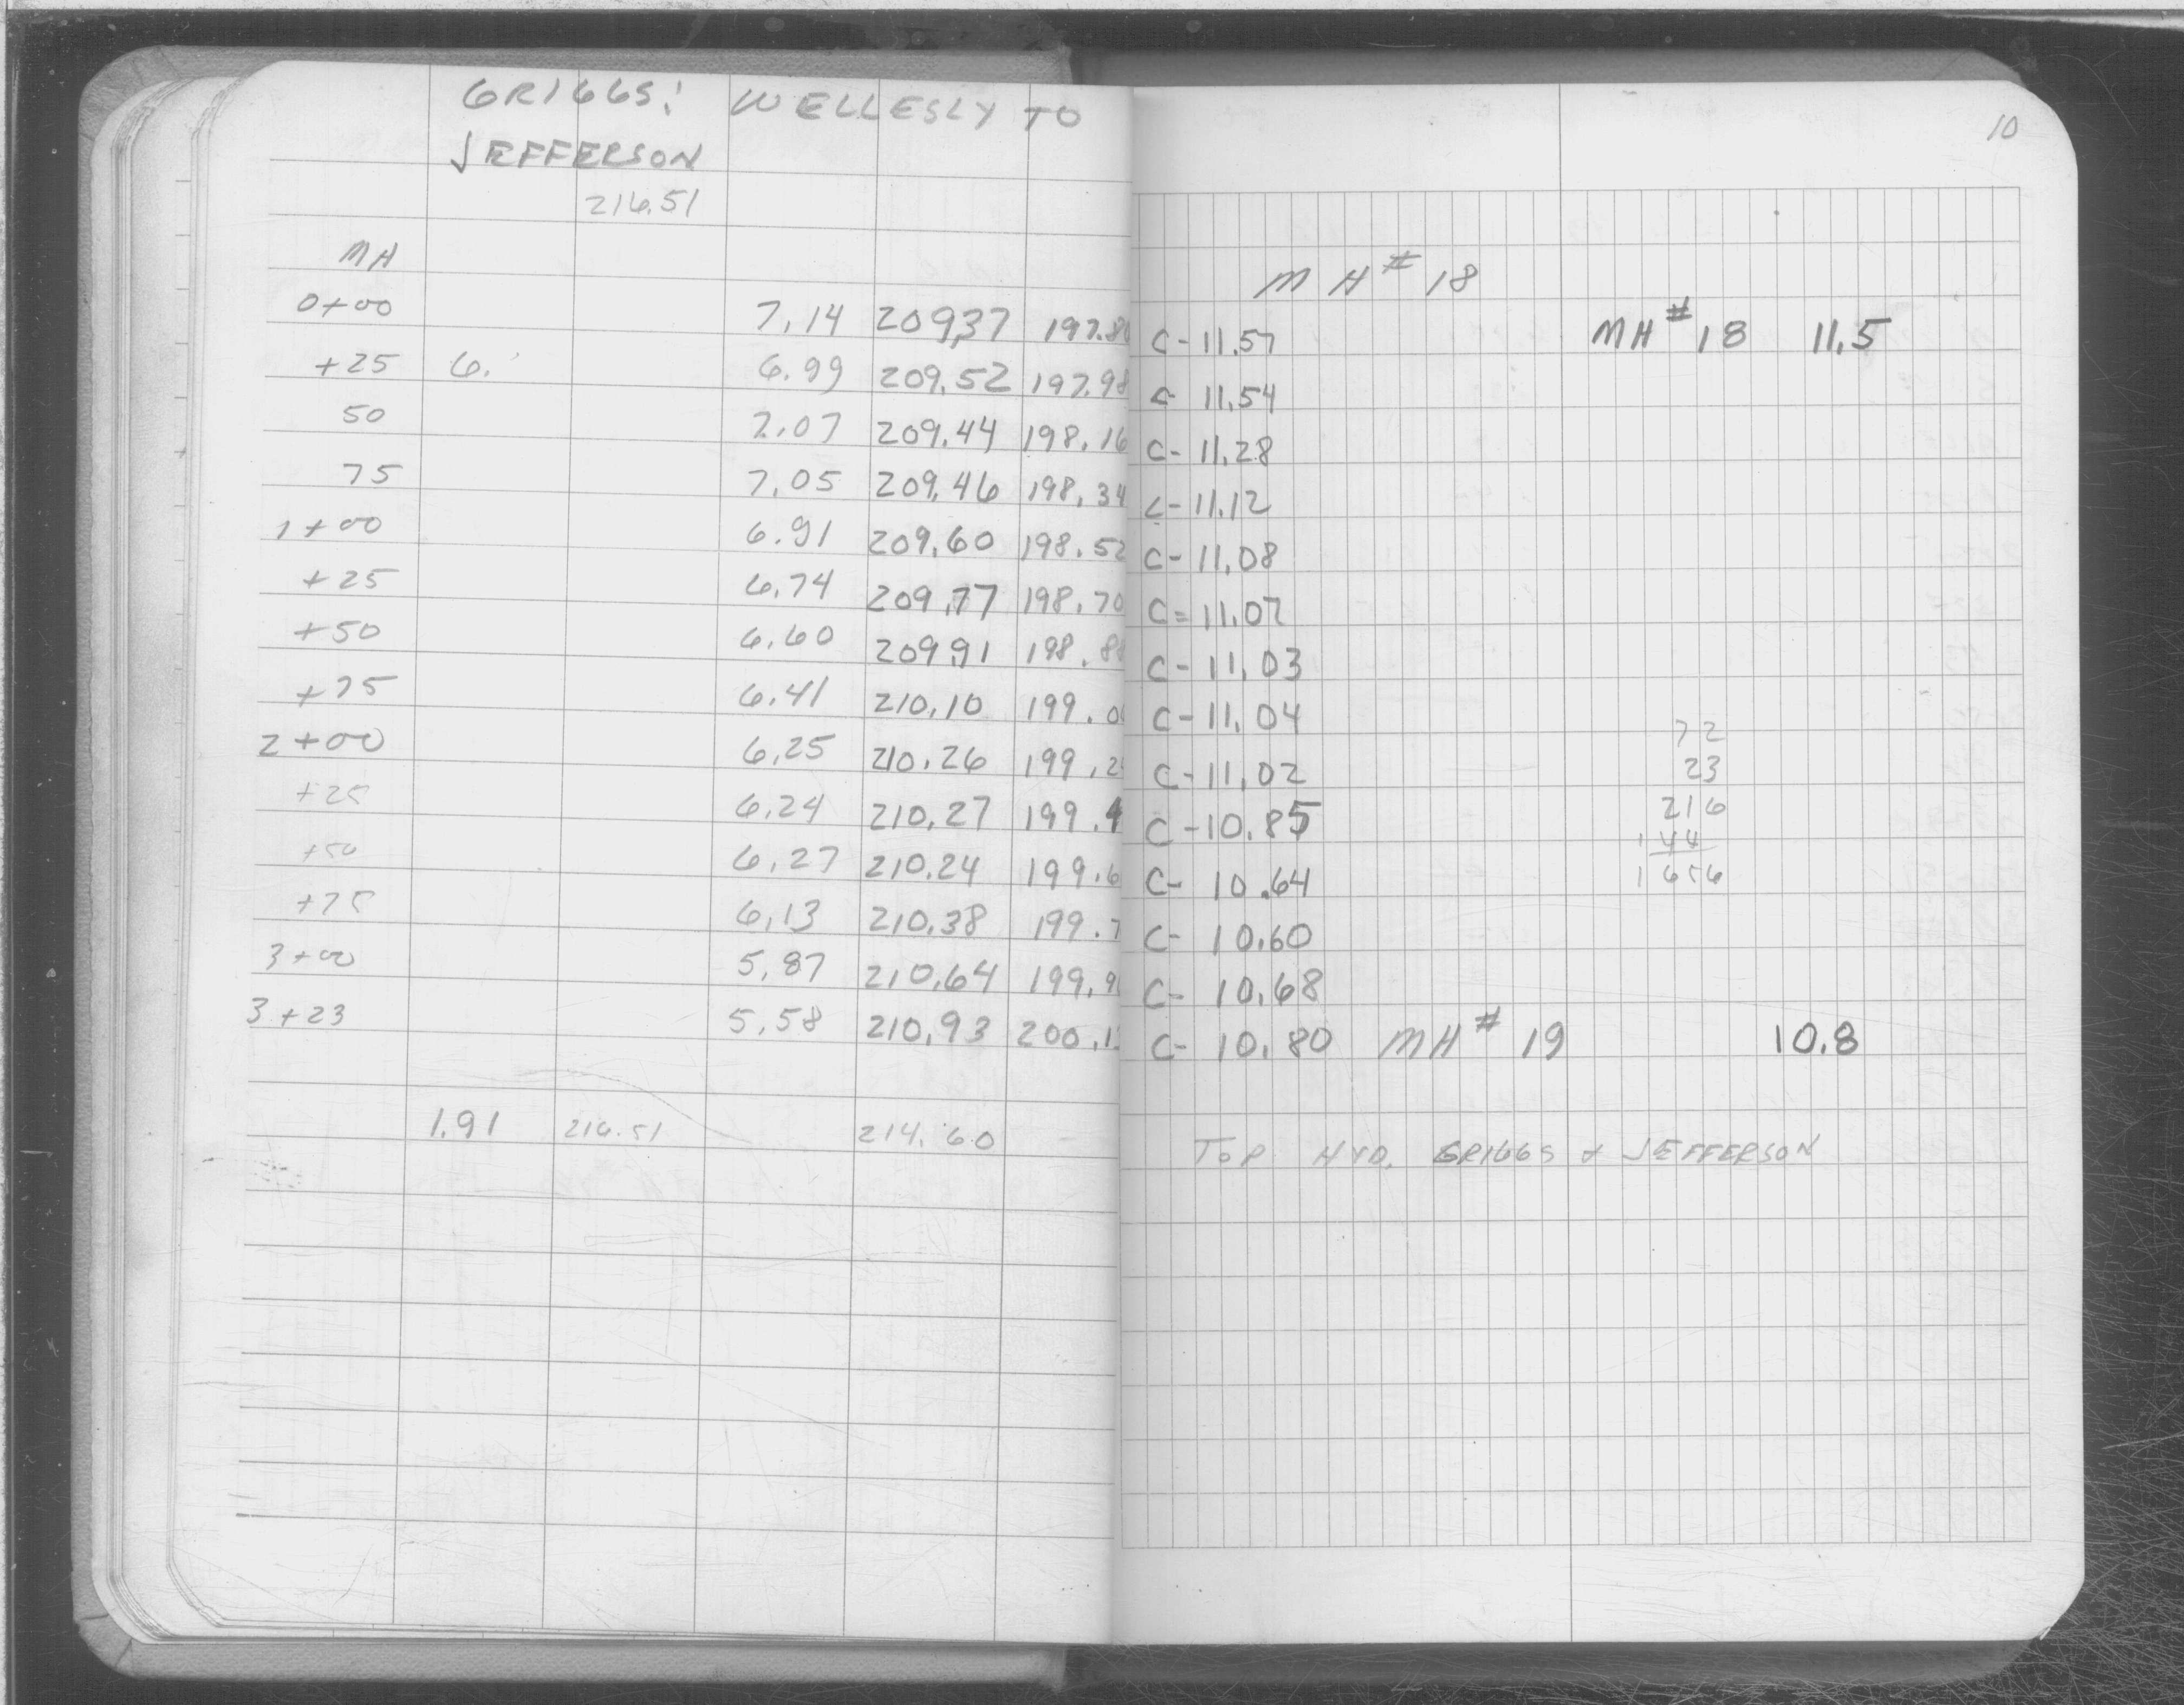 GRIGGS: WELLESLY TO
JEFFERSON
10
216.51
MH
MH # 18
0+00 7.14 209.37 197.80 C- 11.57 MH # 18 11.5
+25 6. 6.99 209.52 197.98 C- 11.54
50 7.07 209.44 198.16 C- 11.28
75 7.05 209.46 198.34 C- 11.12
1+00 6.91 209.60 198.52 C- 11.08
+25 6.74 209.77 198.70 C= 11.07
+50 6.60 209.91 198.88 C- 11.03
+75 6.41 210.10 199.0 C- 11.04
2+00 6.25 210.26 199.2 C- 11.02
+25 6.24 210.27 199.4 C- 10.85
+50 6.27 210.24 199.6 C- 10.64
+75 6.13 210.38 199.7 C- 10.60
3+00 5.87 210.64 199.9 C- 10.68
3+23 5.58 210.93 200.1 C- 10.80 MH # 19 10.8
72
23
216
144
1656
1.91 216.51 214.60 TOP HYD. GRIGGS + JEFFERSON